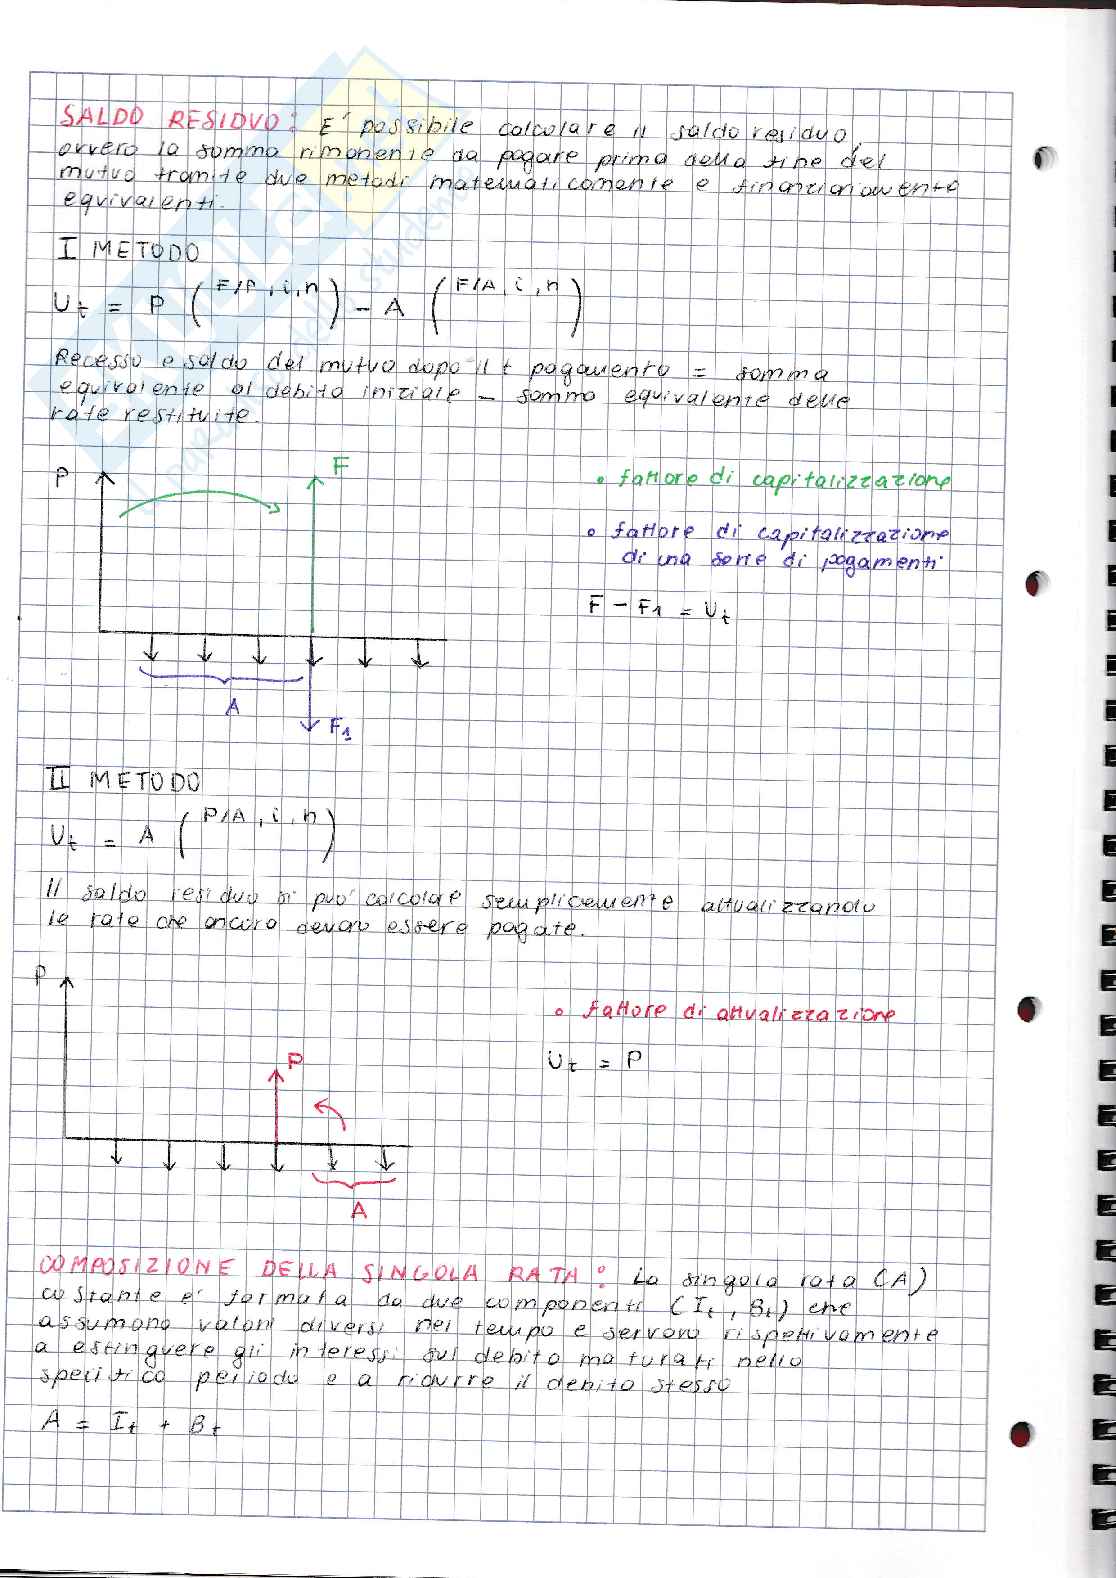 SALDO RESIDUO: E' possibile calcolare il saldo residuo,
ovvero la somma rimanente da pagare prima della fine del
mutuo tramite due metodi matematicamente e finanziariamente
equivalenti.
I METODO
Ut = P (F/P, i, n) - A (F/A, i, n)
Recesso e saldo del mutuo dopo il t pagamento = somma
equivalente al debito iniziale - somma equivalente delle
rate restituite.
P
F
• fattore di capitalizzazione
• fattore di capitalizzazione
di una serie di pagamenti
F - F1 = Ut
A
F1
II METODO
Ut = A (P/A, i, n)
Il saldo residuo si può calcolare semplicemente attualizzando
le rate che ancora devono essere pagate.
P
• fattore di attualizzazione
P
Ut = P
A
COMPOSIZIONE DELLA SINGOLA RATA: La singola rata (A)
costante e' formata da due componenti (It, Bt) che
assumono valori diversi nel tempo e servono rispettivamente
a estinguere gli interessi sul debito maturati nello
specifico periodo e a ridurre il debito stesso
A = It + Bt